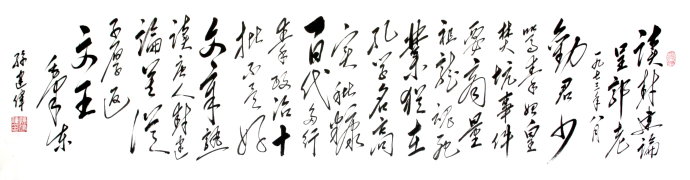 读封建论
呈郭老
一九七三年八月
劝君少
骂秦始皇
焚坑事件
要商量
祖龙魂死
業猶在
孔学名高
实秕糠
百代多行
秦政治十
批不是好
文章熟
读唐人封建
論莫從
子厚返
文王
毛泽东
孙建伟